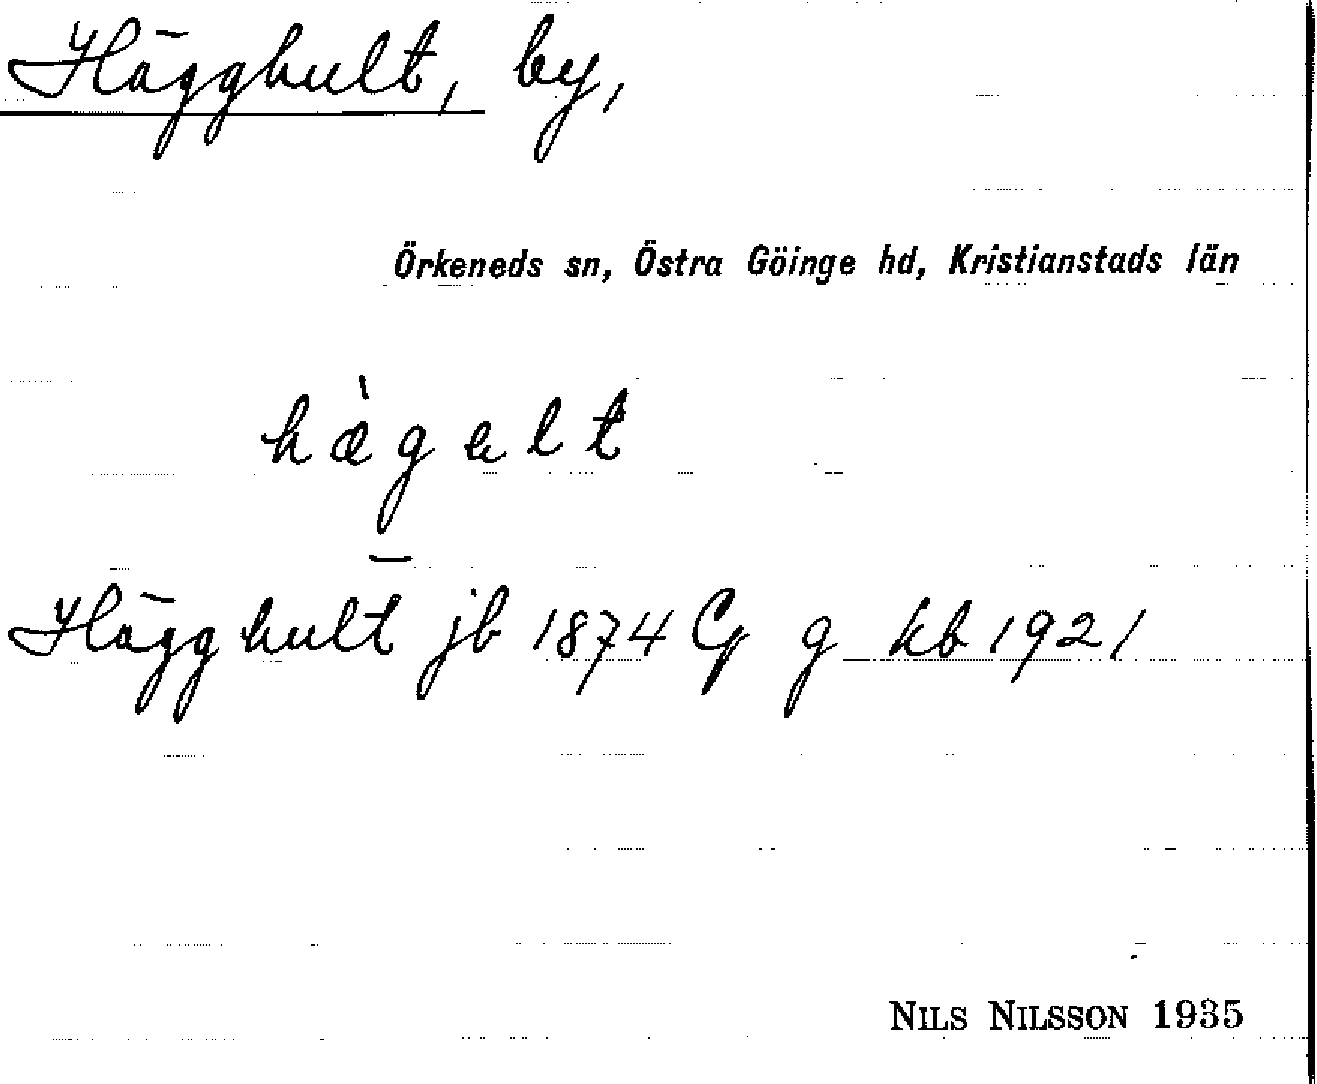 Hägghult, by,
Örkeneds sn, Östra Göinge hd, Kristianstads län
hæ̀galt
Hägghult jb 1874 Cg g kb 1921
NILS NILSSON 1935